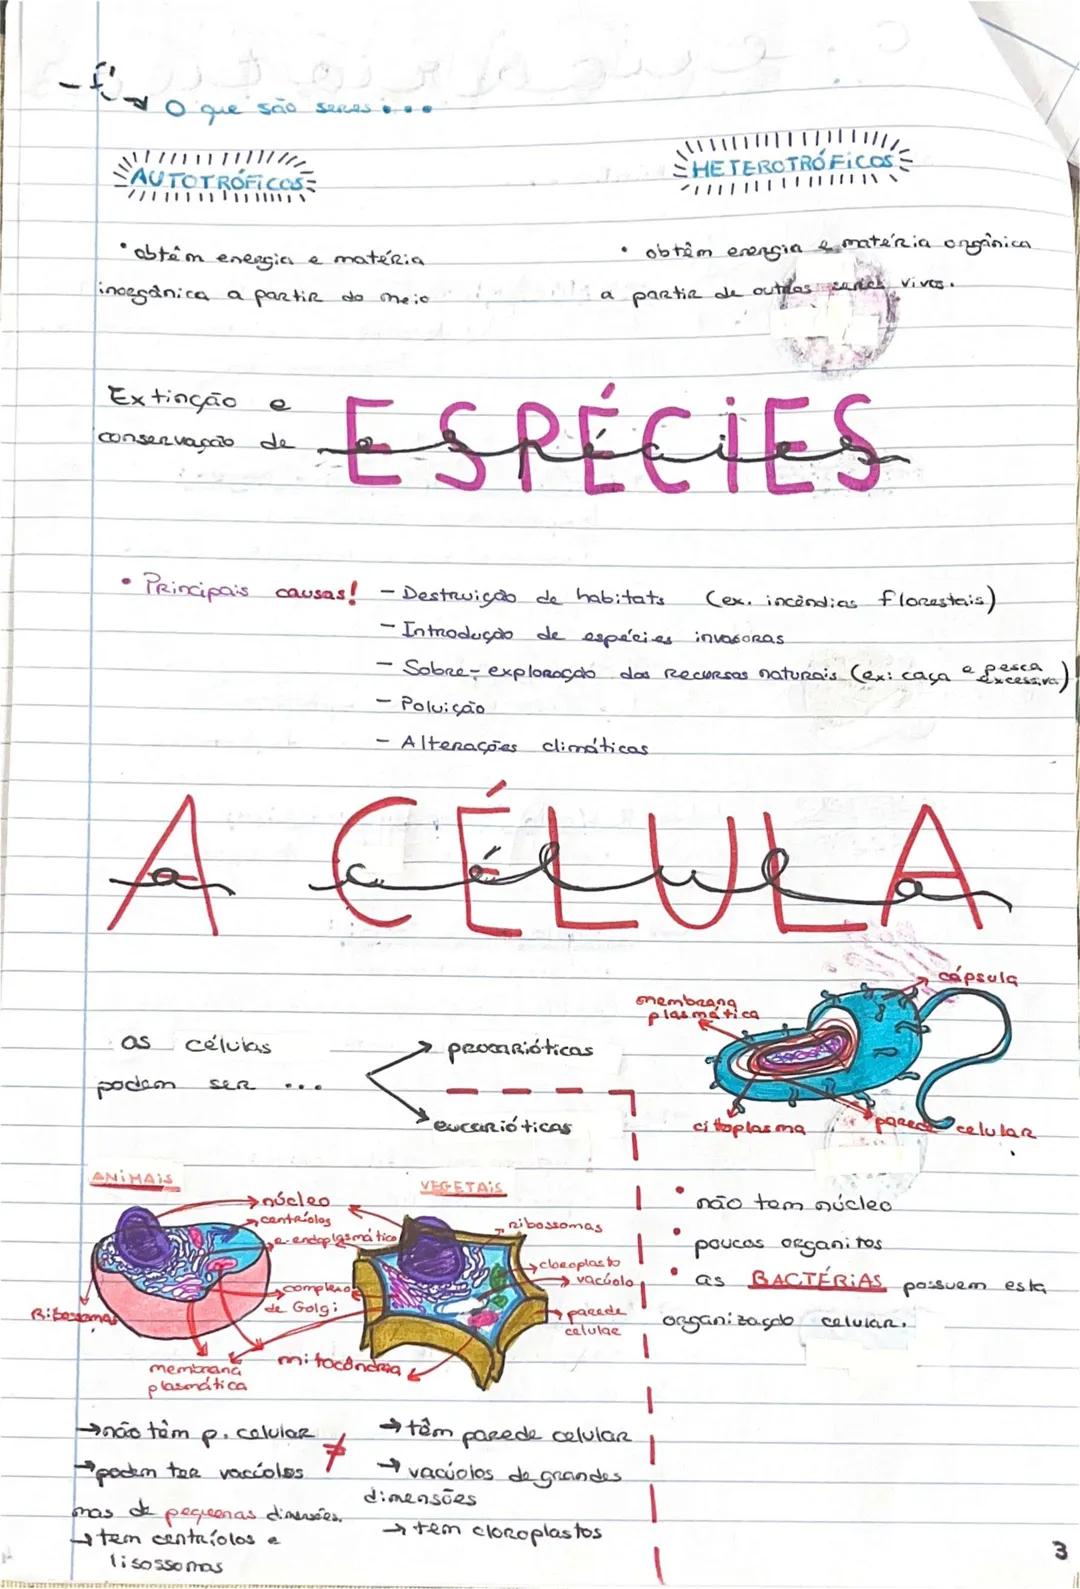 O que são seres...
AUTOTRÓFICOS
HETEROTRÓFICOS
• obtêm energia e matéria
inorgânica a partir do meio
• obtêm energia e matéria orgânica
a partir de outros seres vivos.
Extinção e
conservação de ESPÉCIES
espécies
• Principais causas! - Destruição de habitats (ex. incêndios florestais)
- Introdução de espécies invasoras
- Sobre-exploração dos recursos naturais (ex: caça e pesca excessiva)
- Poluição
- Alterações climáticas
A CÉLULA
a célula
as células
podem ser ...
→ procarióticas
→ eucarióticas
cápsula
membrana
plasmática
citoplasma
parede celular
• não tem núcleo
• poucos organitos
• as BACTÉRIAS possuem esta
organização celular.
ANIMAIS
VEGETAIS
núcleo
centríolos
r. endoplasmático
complexo
de Golgi
Ribossomas
membrana
plasmática
mitocôndria
ribossomas
cloroplasto
vacúolo
parede
celular
→ não têm p. celular
→ podem ter vacúolos
mas de pequenas dimensões.
→ tem centríolos e
lisossomas
≠
→ têm parede celular
→ vacúolos de grandes
dimensões
→ tem cloroplastos
3